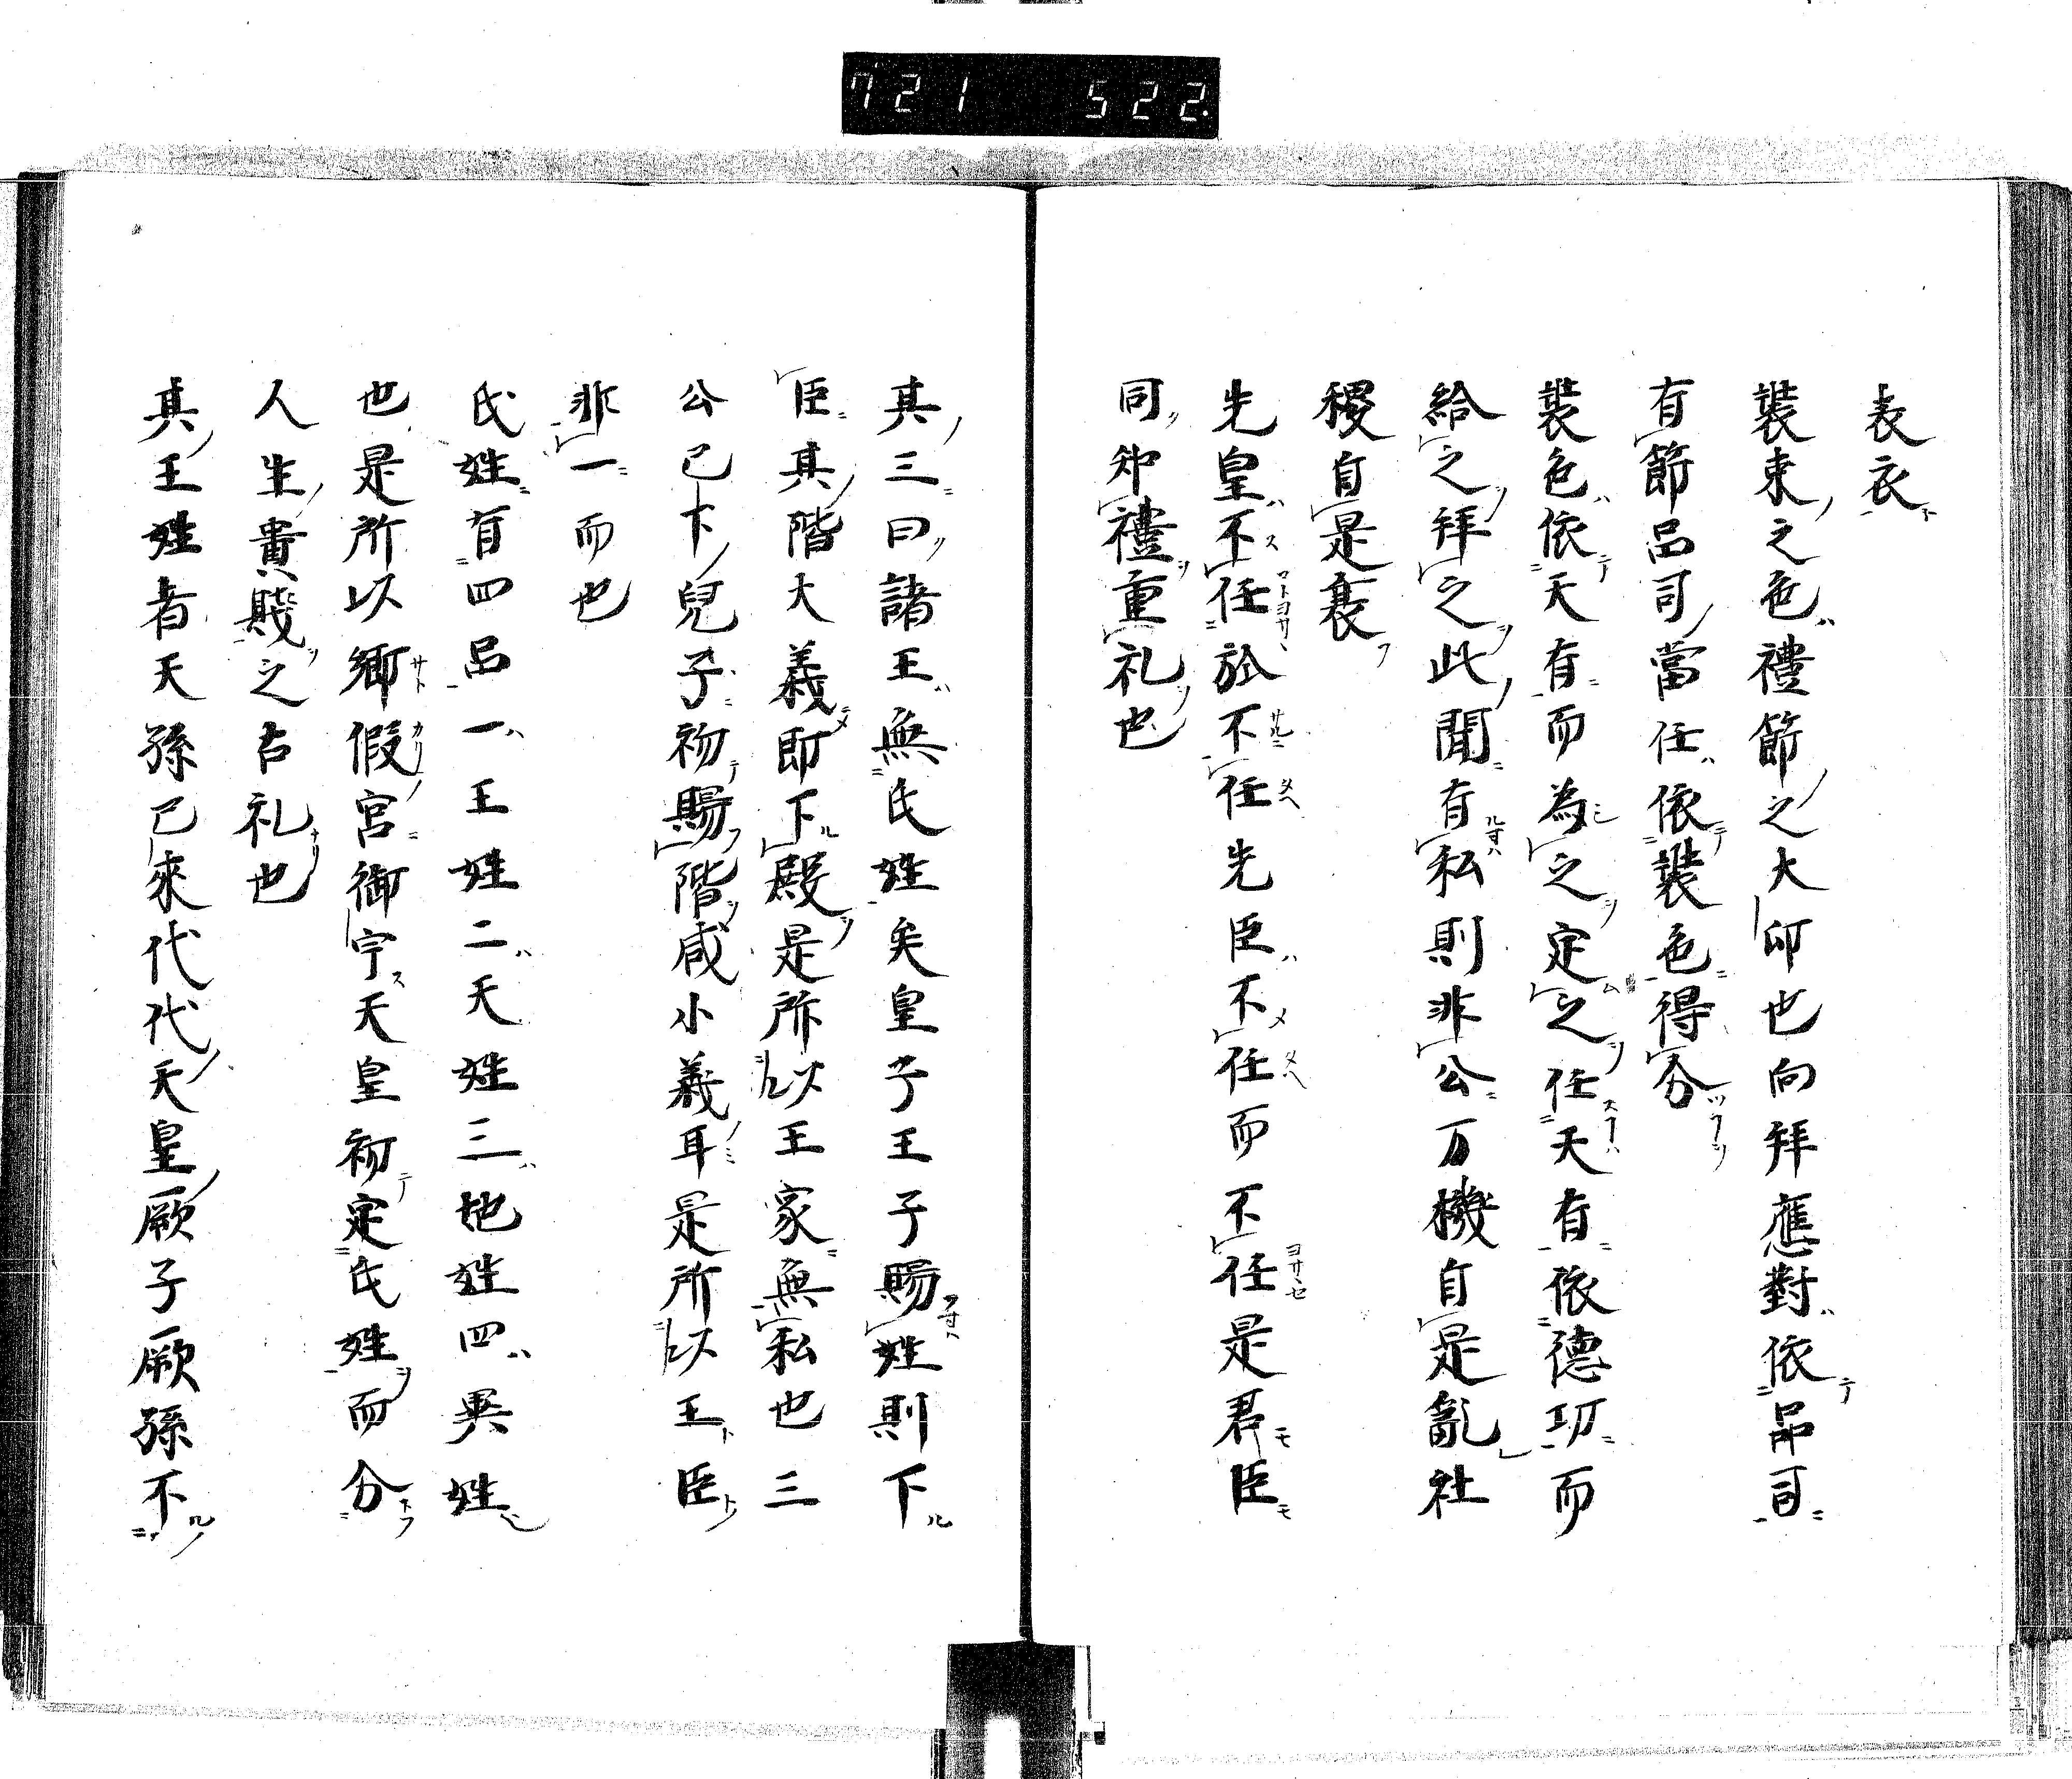 721 522.
表衣
裝束之色禮節之大印也向拜應對依品司
有節品司當任依裝色得分
裝色依天有而為之定之任天有依德功而
給之拜之此聞有私則非公万機自是亂社
稷自是衰
先皇不任於不任先臣不任而不任是君臣
同卑禮重礼也
其三曰諸王無氏姓矣皇子王子賜姓則下
臣其階大義即下殿是所以王家無私也三
公已下兒子初賜階咸小義耳是所以王臣
非一而也
氏姓有四品一王姓二天姓三地姓四異姓
也是所以鄉假宮御宁天皇初定氏姓而分
人生貴賤之古礼也
其王姓者天孫已來代代天皇厥子厥孫不